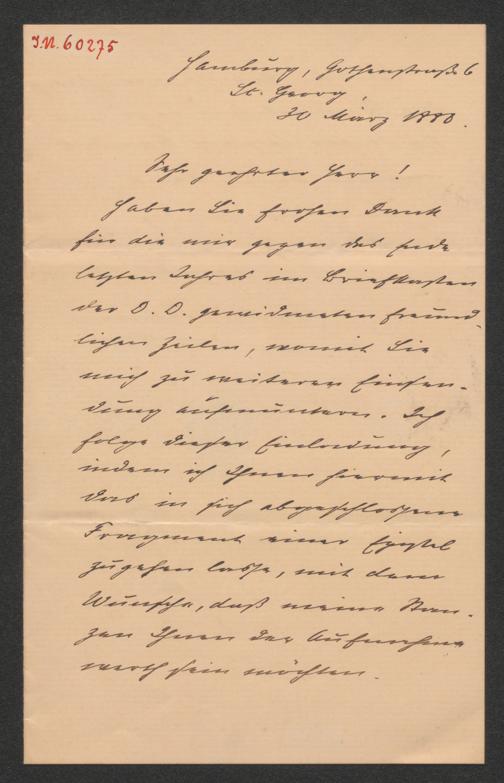 I.N. 60275
Hamburg, Gothenstraße 6
St. Georg,
30 März 1880.
Sehr geehrter Herr!
Haben Sie frohen Dank
für die mir gegen das Ende
letzten Jahres im Briefkasten
der D. D. gewidmeten freund-
lichen Zeilen, womit Sie
mich zu weiterer Einsen-
dung aufmuntern. Ich
folge dieser Einladung,
indem ich Ihnen hiermit
das in sich abgeschlossene
Fragment einer Epistel
zugehen lasse, mit dem
Wunsche, daß meine Stan-
zen Ihnen der Aufnahme
werth sein möchten.